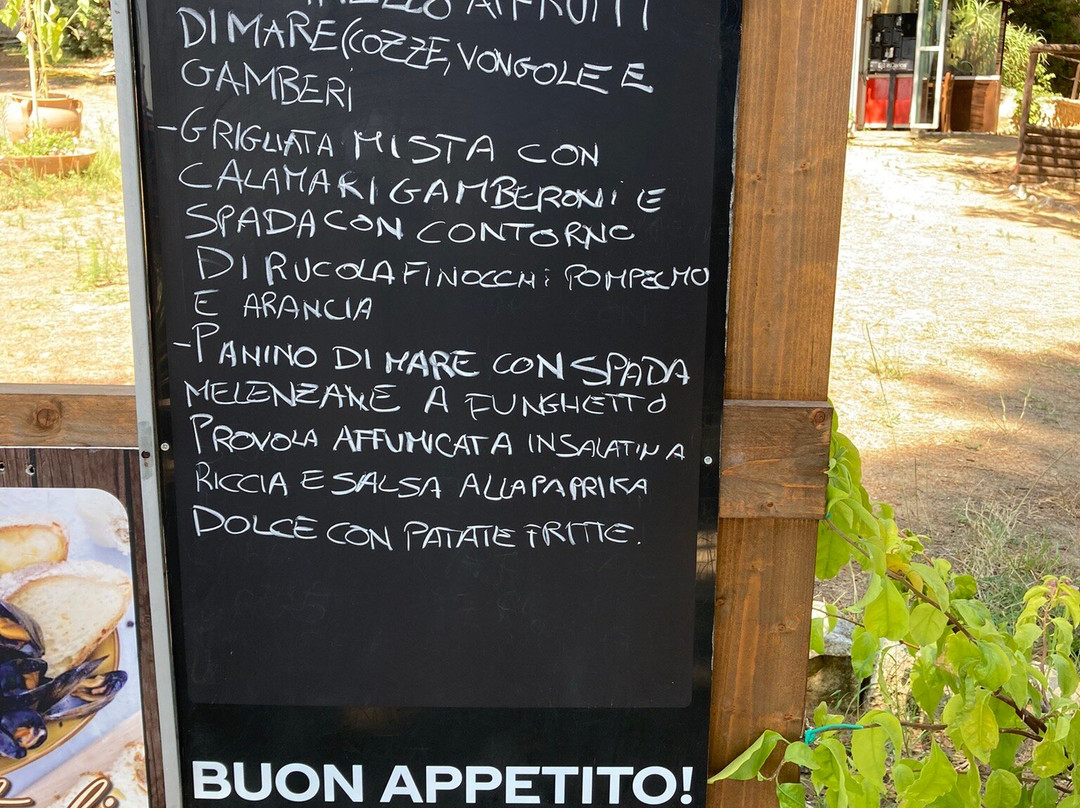 AI FRUTTI
DI MARE (COZZE, VONGOLE E
GAMBERI
-GRIGLIATA MISTA CON
CALAMARI GAMBERONI E
SPADA CON CONTORNO
DI RUCOLA FINOCCHI POMPELMO
E ARANCIA
-PANINO DI MARE CON SPADA
MELENZANE A FUNGHETTO
PROVOLA AFFUMICATA INSALATINA
RICCIA E SALSA ALLA PAPRIKA
DOLCE CON PATATE FRITTE.
BUON APPETITO!